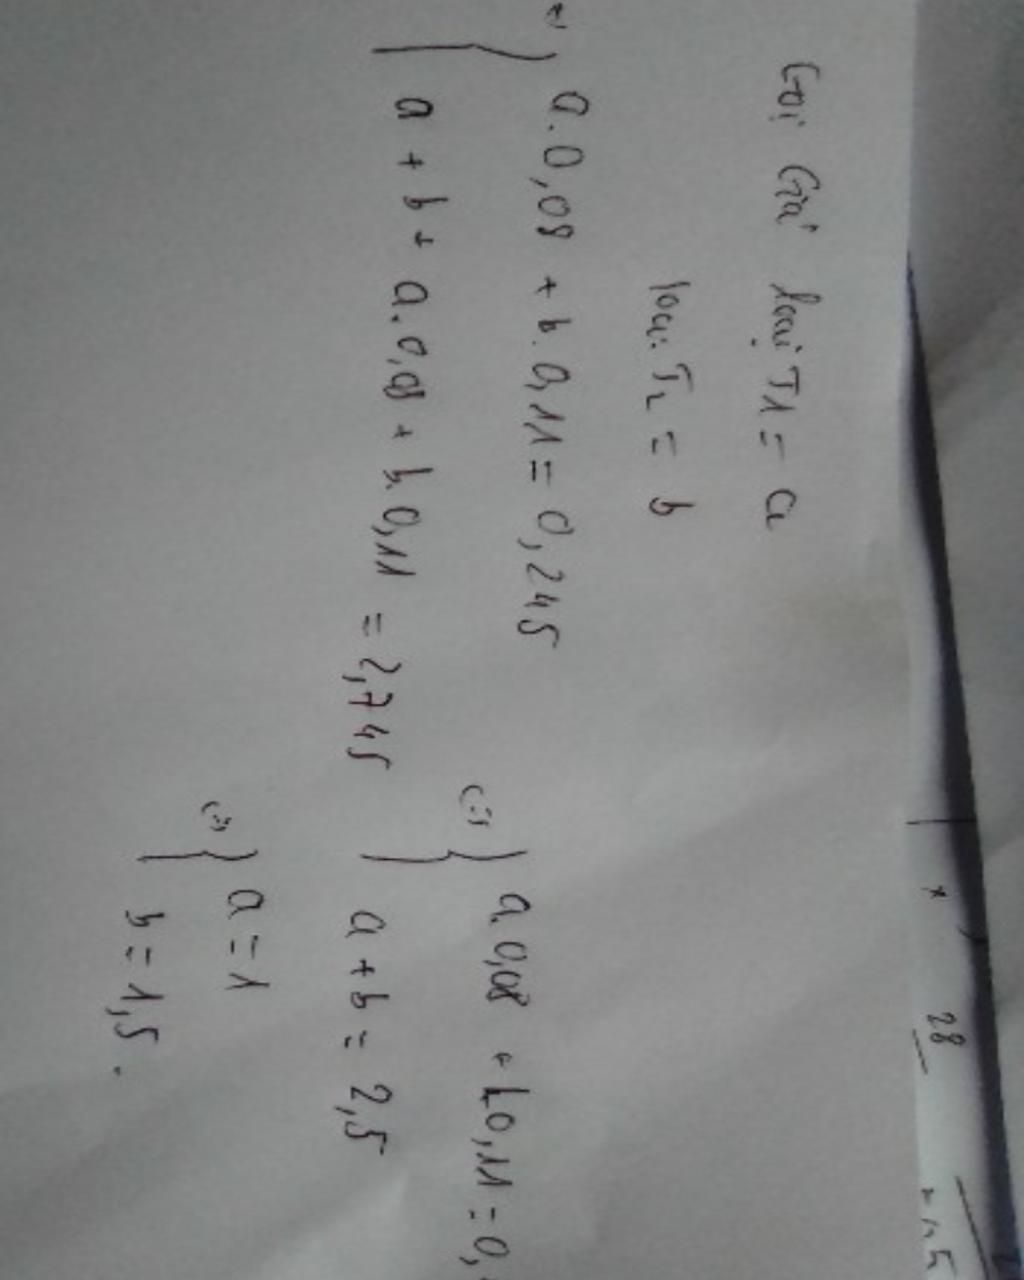 Gọi Giá loại T1 = a
loại T2 = b
a.0,08 + b.0,11 = 0,245
a + b + a.0,08 + b.0,11 = 2,745
a.0,08 + b.0,11 = 0,
a + b = 2,5
a = 1
b = 1,5.
x 28